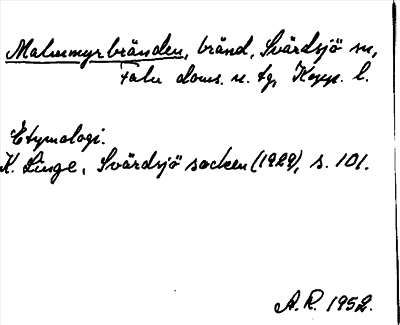 Malmmyrbränden, bränd, Svärdsjö sn,
Falu doms. n. tg, Kopp. l.
Etymologi.
K. Linge, Svärdsjö socken (1929), s. 101.
A.R. 1952.